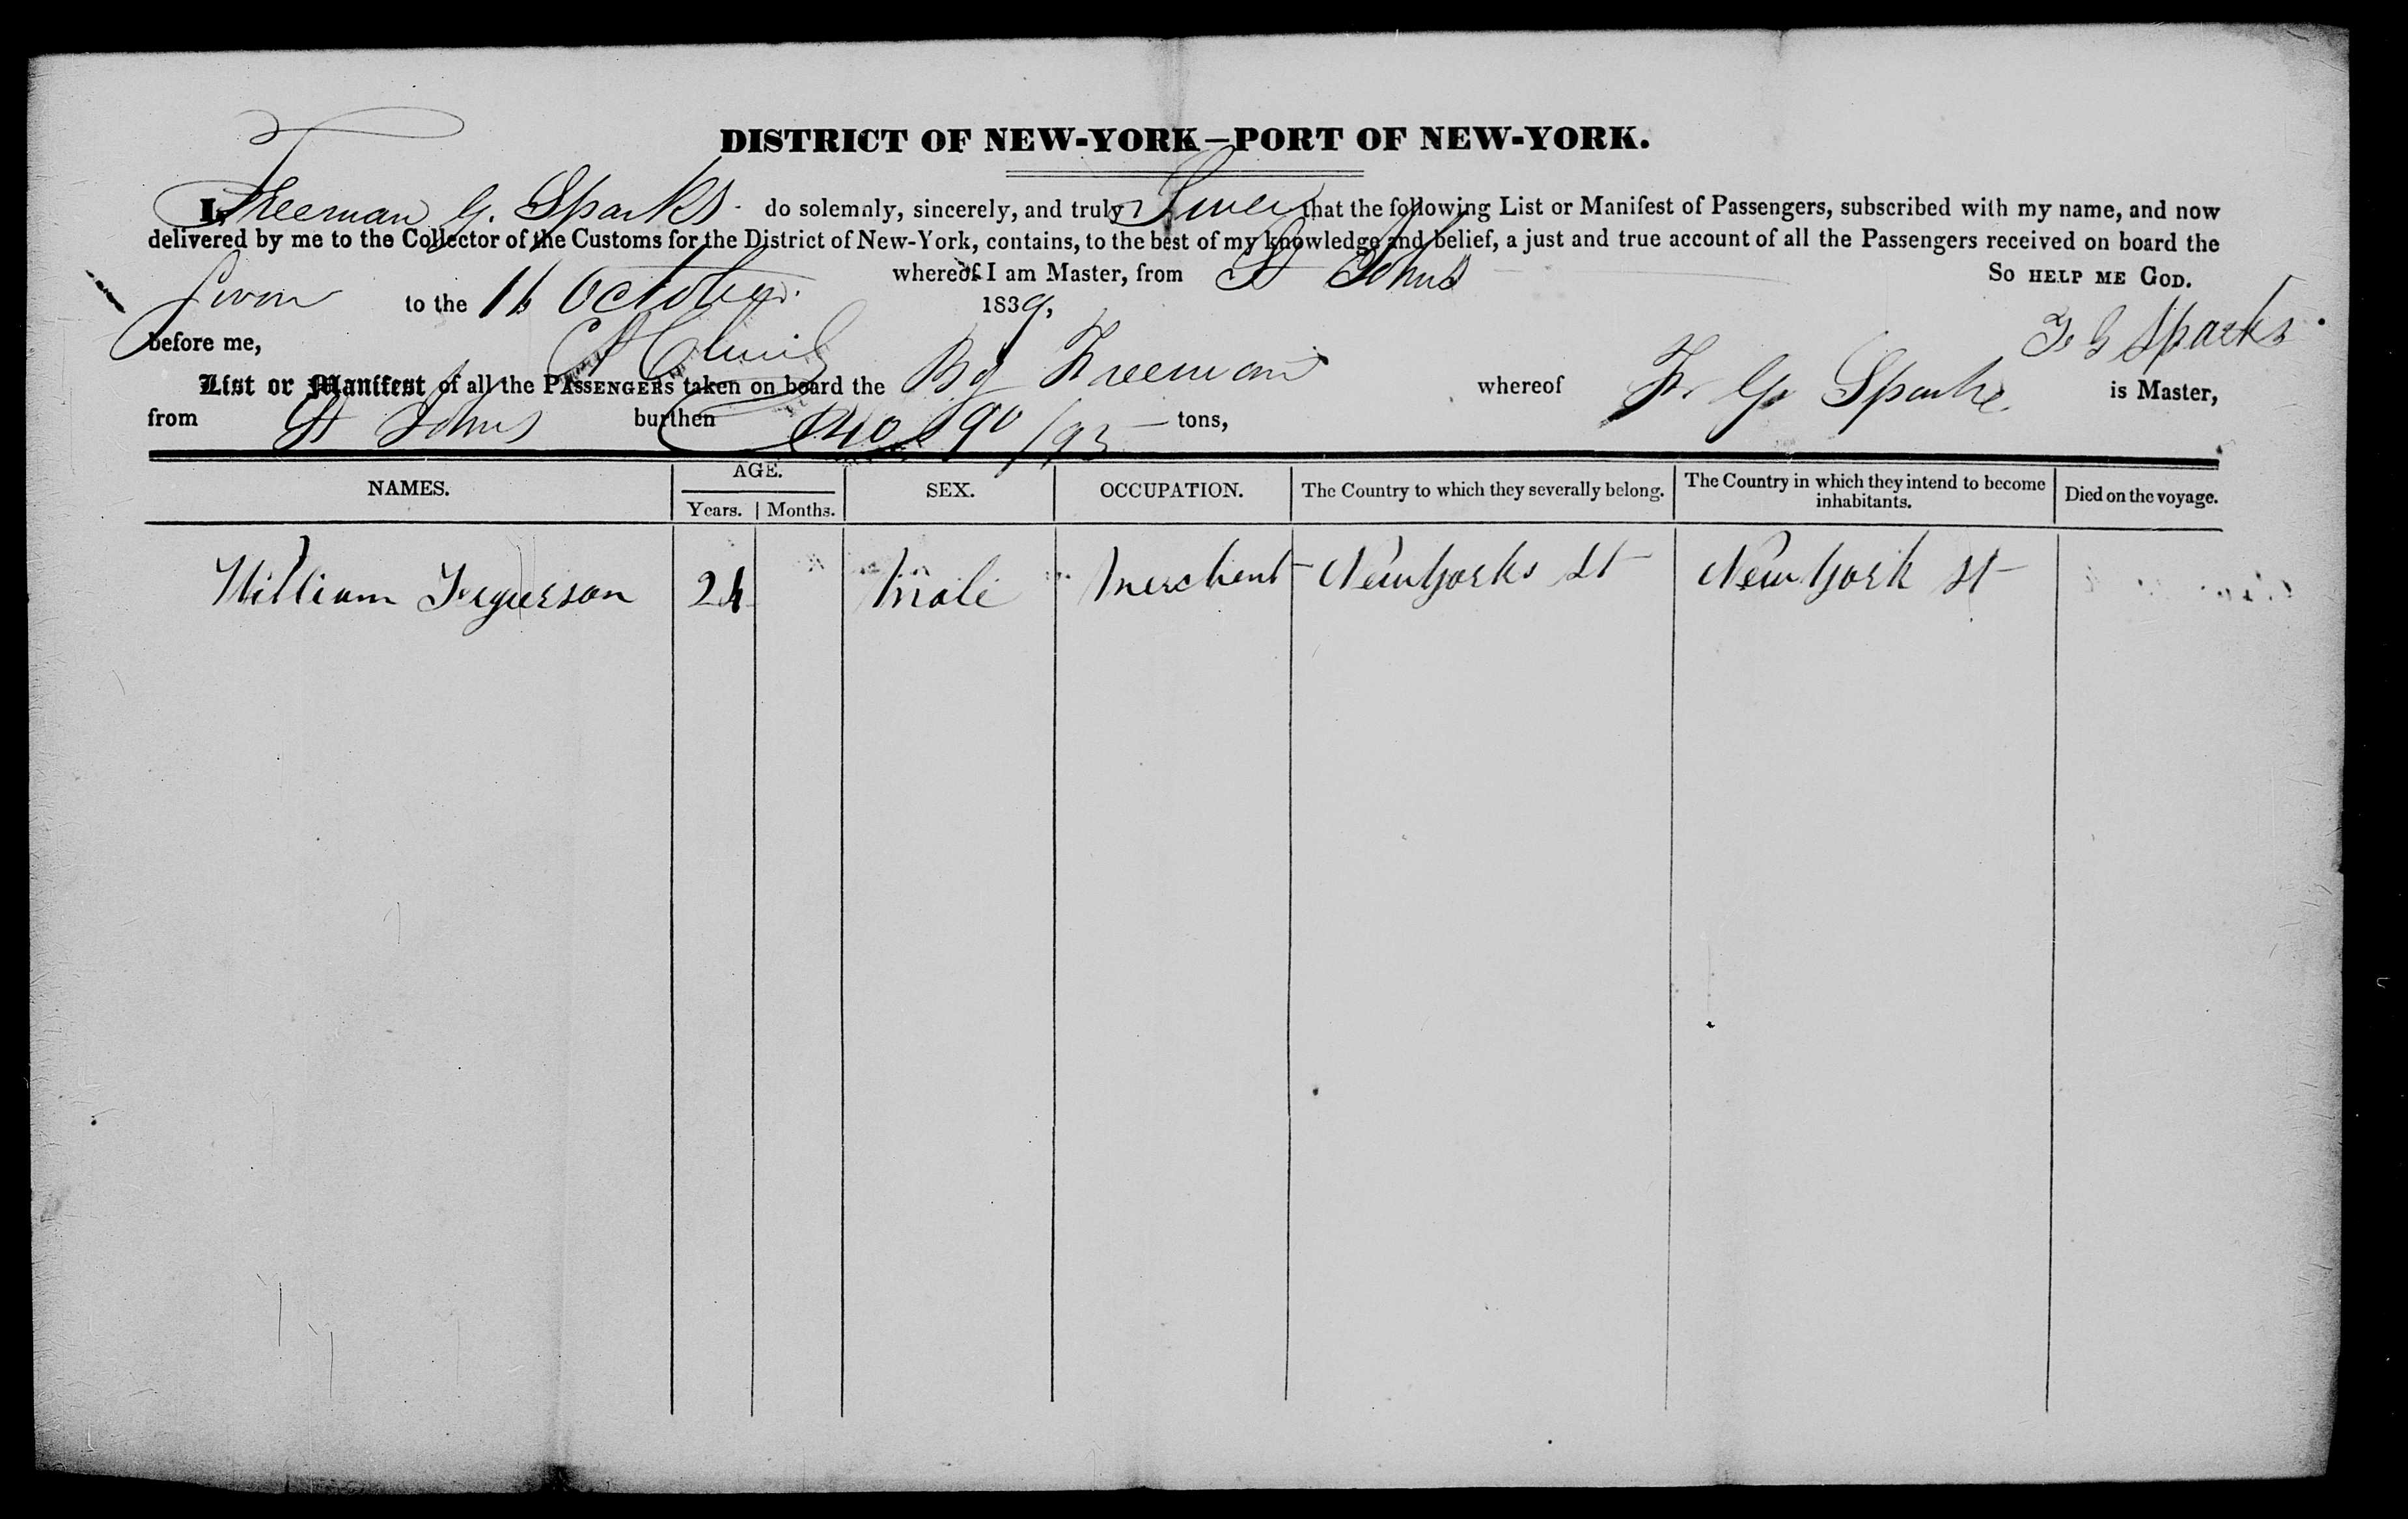 DISTRICT OF NEW-YORK—PORT OF NEW-YORK.
I, Freeman G. Sparks do solemnly, sincerely, and truly Swear that the following List or Manifest of Passengers, subscribed with my name, and now
delivered by me to the Collector of the Customs for the District of New-York, contains, to the best of my knowledge and belief, a just and true account of all the Passengers received on board the
whereof I am Master, from St Johns So HELP ME GOD.
Sworn to the 16 October 1839,
F G Sparks
before me,
List or Manifest of all the PASSENGERS taken on board the Bg Freeman whereof F. G. Sparks is Master,
from St Johns burthen 90/95 tons,
NAMES. AGE. Years. Months. SEX. OCCUPATION. The Country to which they severally belong. The Country in which they intend to become inhabitants. Died on the voyage.
William Ferguerson 24 Male Merchent New Yorks St New York St